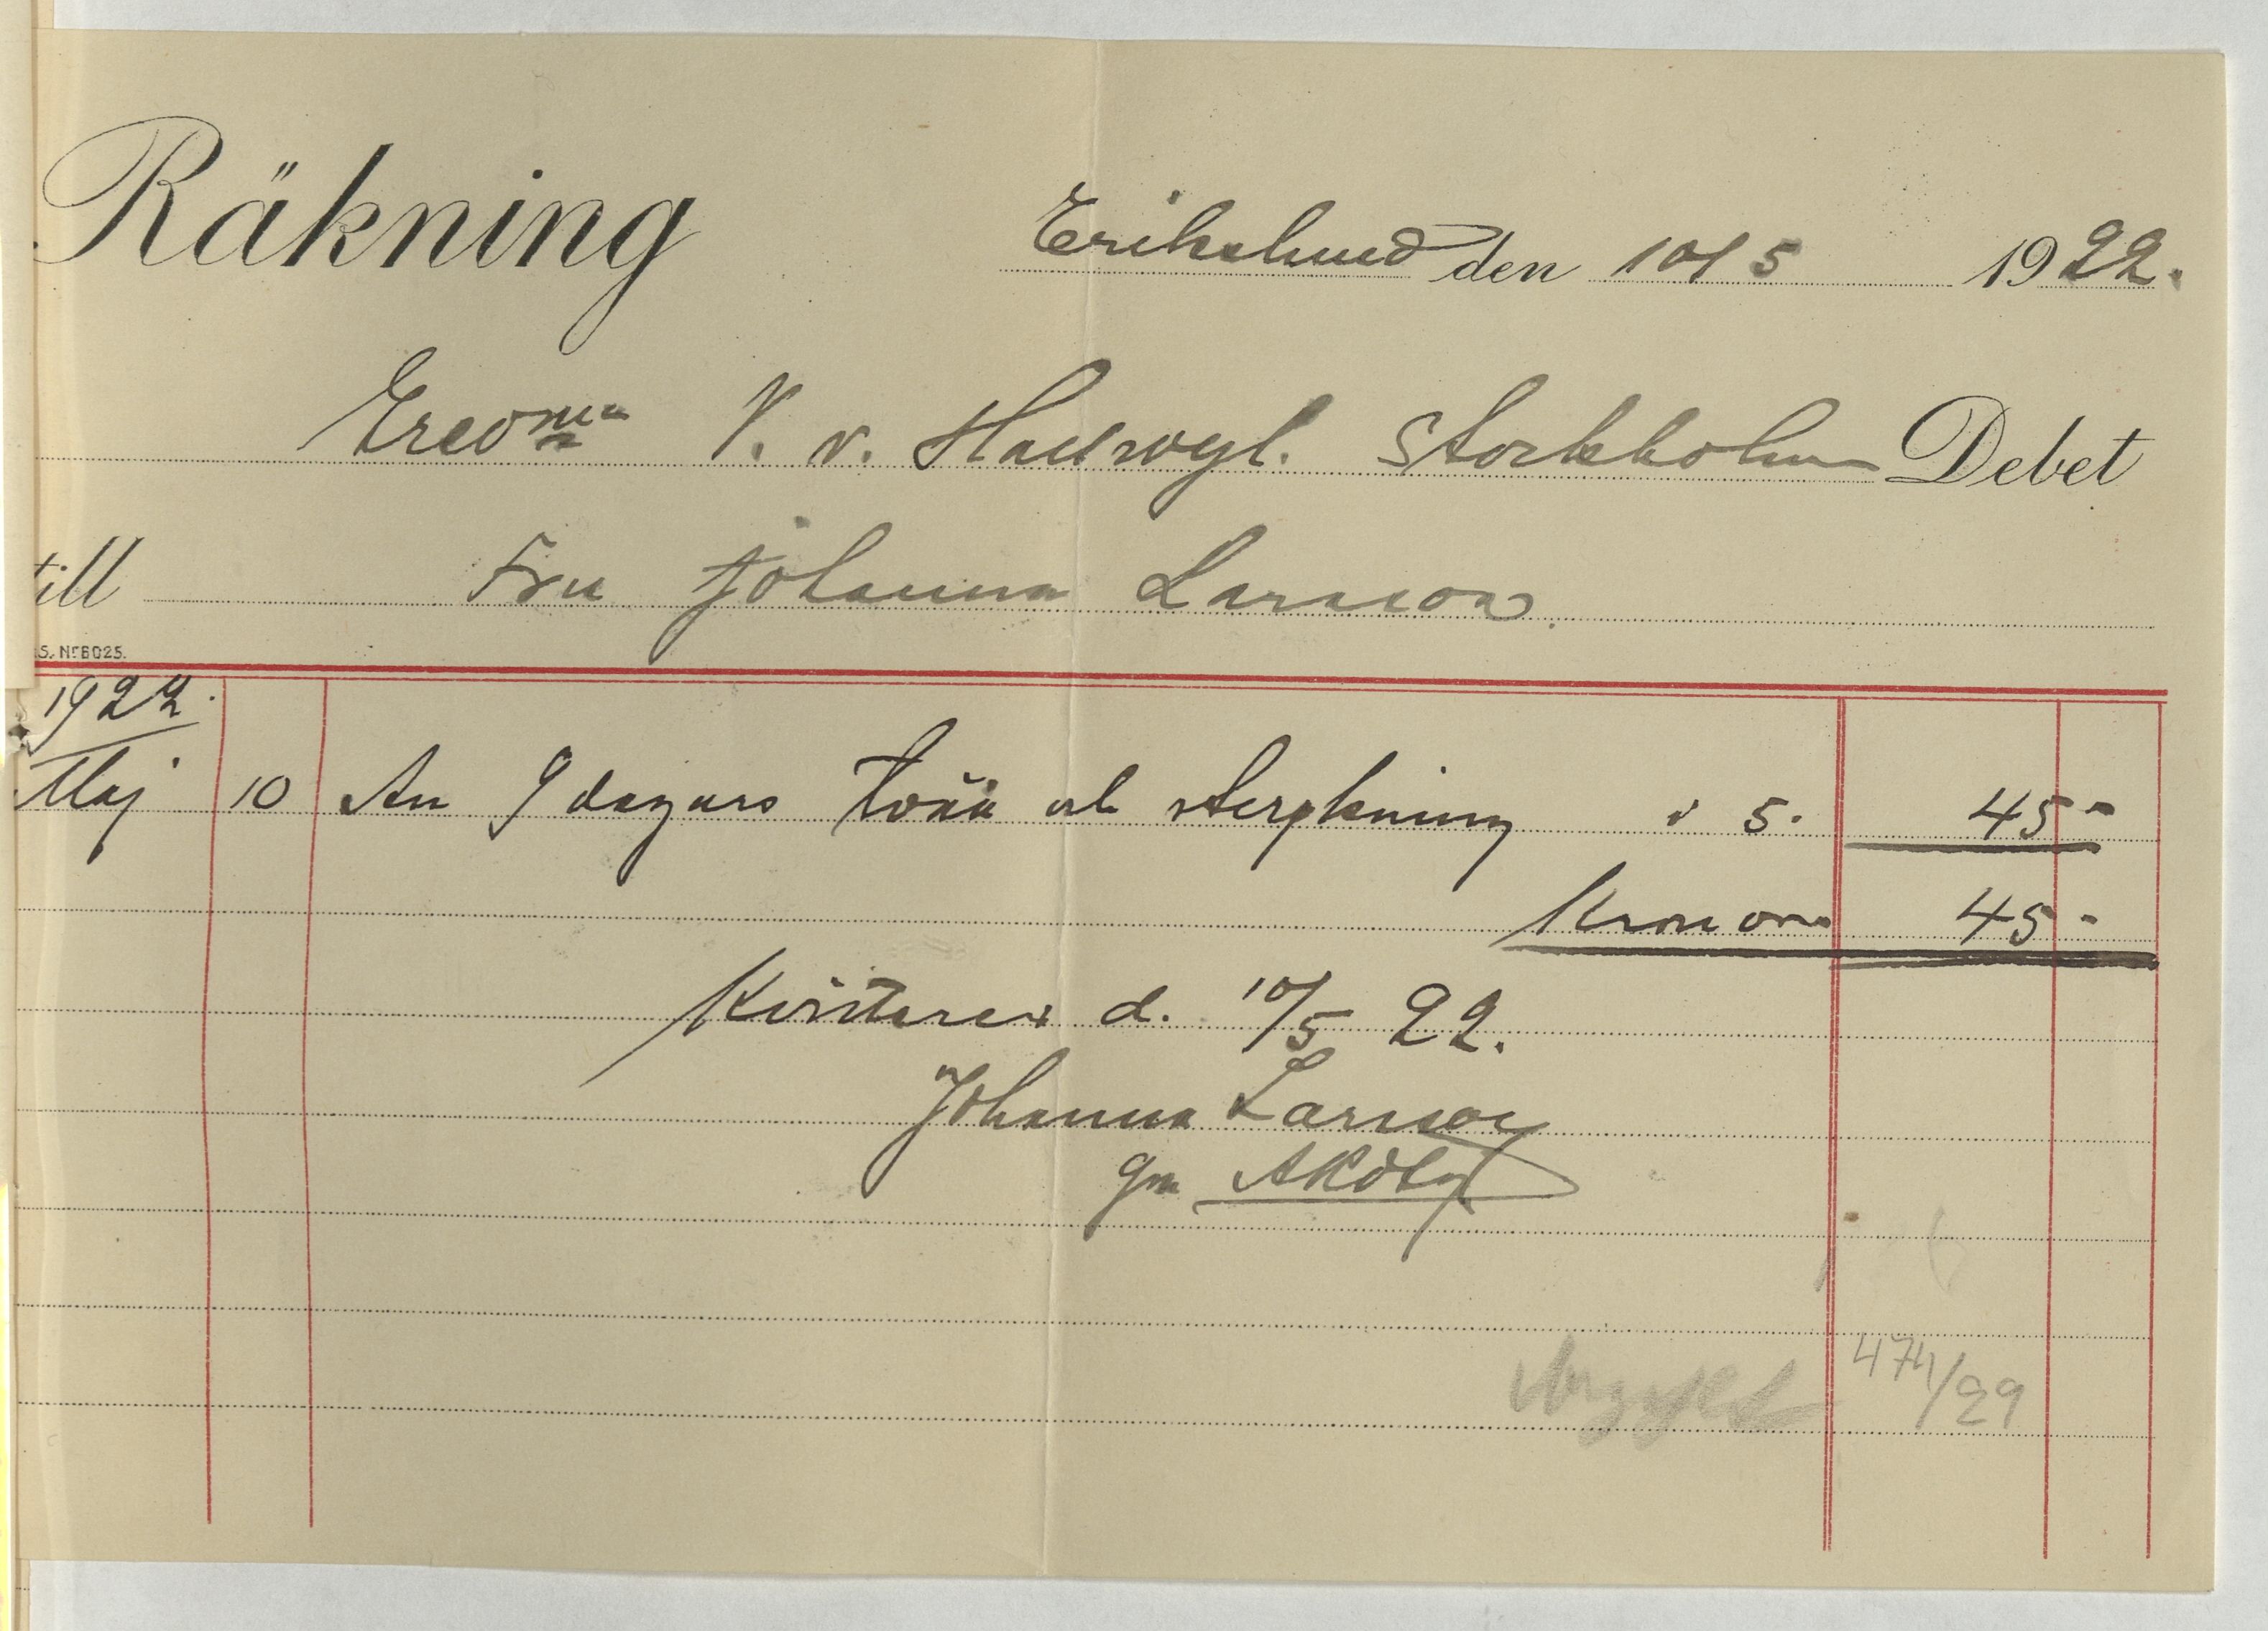 Räkning Erikslund den 10/5 1922.
V. v. Hallwyl. Stockholm Debet
till Fru Johanna Larsson.
S. Nr 6025.
1922.
Maj 10 An 9 dagars tvätt och strykning à 5. 45 -
Kronor 45 -
Kvitteras d. 10/5 22.
Johanna Larsson
gm
471/29